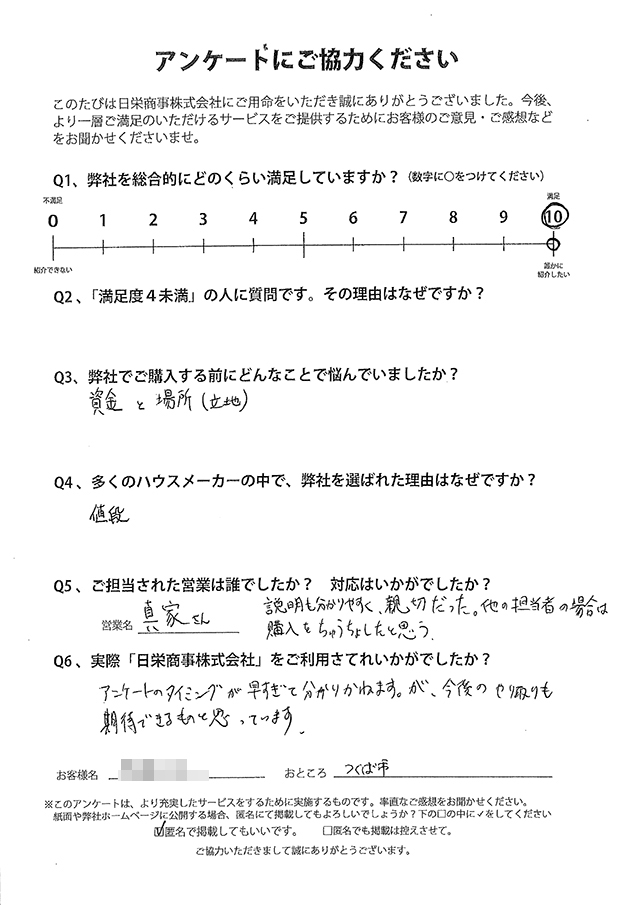 アンケートにご協力ください
このたびは日栄商事株式会社にご用命をいただき誠にありがとうございました。今後、
より一層ご満足のいただけるサービスをご提供するためにお客様のご意見・ご感想など
をお聞かせくださいませ。
Q1、弊社を総合的にどのくらい満足していますか？（数字に○をつけてください）
不満足 満足
0 1 2 3 4 5 6 7 8 9 10
紹介できない 誰かに
紹介したい
Q2、「満足度４未満」の人に質問です。その理由はなぜですか？
Q3、弊社でご購入する前にどんなことで悩んでいましたか？
資金 と 場所（立地）
Q4、多くのハウスメーカーの中で、弊社を選ばれた理由はなぜですか？
値段
Q5、ご担当された営業は誰でしたか？　対応はいかがでしたか？
営業名 真家さん 説明も分かりやすく、親切だった。他の担当者の場合は
購入をちゅうちょしたと思う.
Q6、実際「日栄商事株式会社」をご利用されてれいかがでしたか？
アンケートのタイミングが早すぎて分かりかねます。が、今後のやり取りも
期待できるものと思っています.
お客様名 おところ つくば市
※このアンケートは、より充実したサービスをするために実施するものです。率直なご感想をお聞かせください。
紙面や弊社ホームページに公開する場合、匿名にて掲載してもよろしいでしょうか？下の□の中に✓をしてください
☑匿名で掲載してもいいです。　□匿名でも掲載は控えさせて。
ご協力いただきまして誠にありがとうございます。